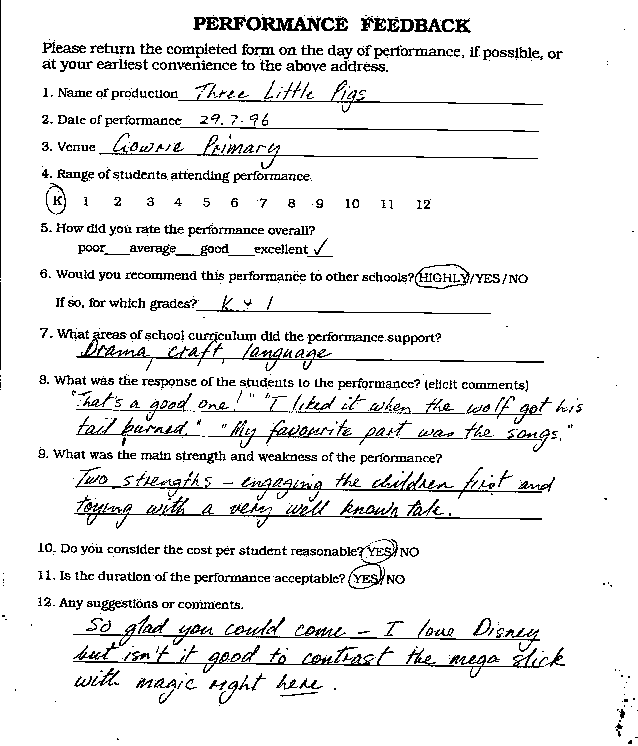 PERFORMANCE FEEDBACK
Please return the completed form on the day of performance, if possible, or
at your earliest convenience to the above address.
1. Name of production Three Little Pigs
2. Date of performance 29.7.96
3. Venue Gowrie Primary
4. Range of students attending performance.
K 1 2 3 4 5 6 7 8 9 10 11 12
5. How did you rate the performance overall?
poor___average___good___excellent ✓
6. Would you recommend this performance to other schools? HIGHLY/YES/NO
If so, for which grades? K + 1
7. What areas of school curriculum did the performance support?
Drama, craft, language
8. What was the response of the students to the performance? (elicit comments)
"That's a good one!" "I liked it when the wolf got his
tail burned." "My favourite part was the songs."
9. What was the main strength and weakness of the performance?
Two strengths – engaging the children first and
toying with a very well known tale.
10. Do you consider the cost per student reasonable? YES/NO
11. Is the duration of the performance acceptable? YES/NO
12. Any suggestions or comments.
So glad you could come – I love Disney
but isn't it good to contrast the mega slick
with magic right here.